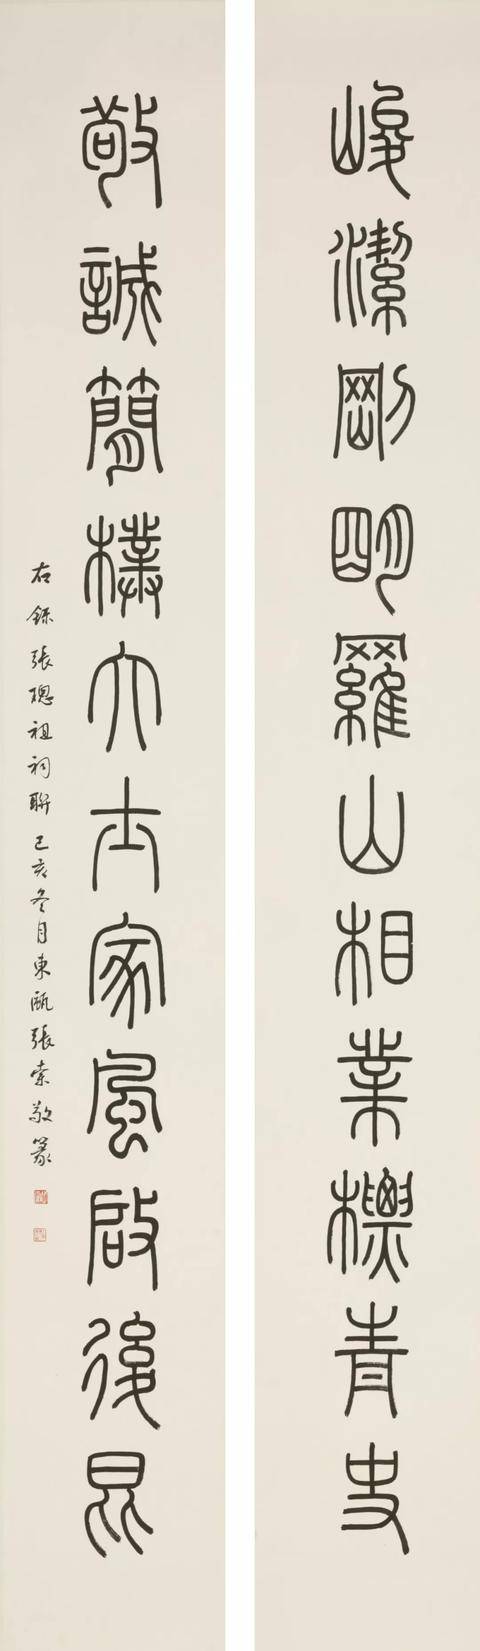 峻潔剛明羅山相業標青史
敬誠簡樸大士家風啟後昆
右錄張璁祖祠聯己亥冬月東甌張索敬篆